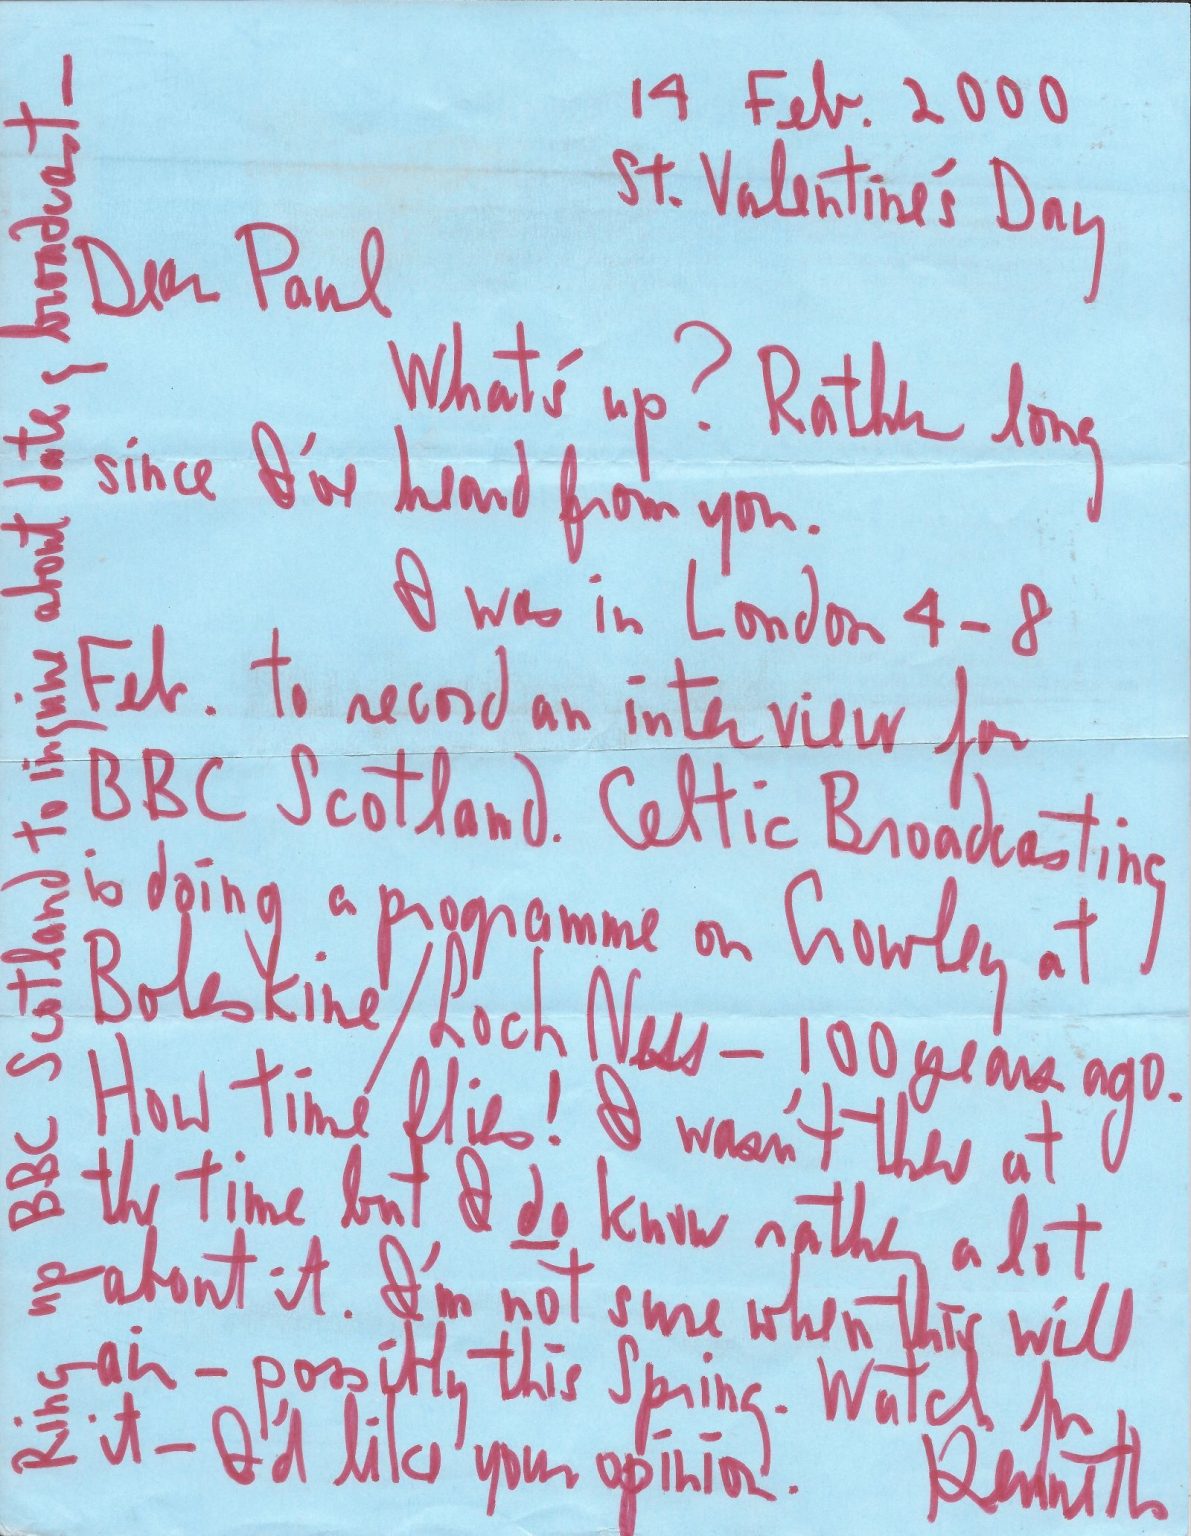 14 Feb. 2000
St. Valentine's Day
Dear Paul
What's up? Rather long
since I've heard from you.
I was in London 4-8
Feb. to record an interview for
BBC Scotland. Celtic Broadcasting
is doing a programme on Crowley at
Boleskine/Loch Ness – 100 years ago.
How time flies! I wasn't there at
the time but I do know rather a lot
about it. I'm not sure when this will
air – possibly this Spring. Watch for
it – I'd like your opinion.
Kenneth
Ring up BBC Scotland to inquire about date of broadcast –